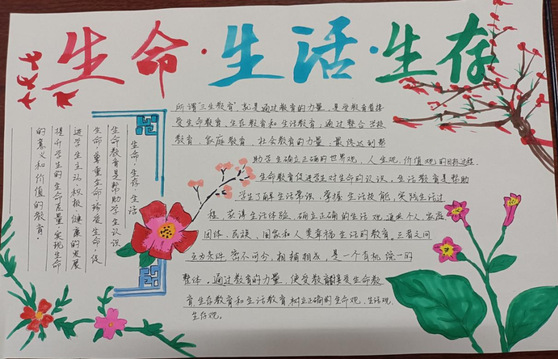 生命·生活·生存
所谓"三生教育"就是通过教育的力量,是受教育者接
受生命教育,生存教育和生活教育,通过整合学校
教育,家庭教育,社会教育的力量,最终达到帮
助学生确立正确的世界观,人生观,价值观的目标过程.
生命教育促进学生对生命的认识,生活教育是帮助
学生了解生活常识,掌握生活技能,实践生活过
程,获得生活体验,确立正确的生活观,追求个人,家庭
团体,民族,国家和人类幸福生活的教育.三者之间
互为条件,密不可分,相辅相成,是一个有机统一的
整体,通过教育的力量,使受教育者接受生命教
育生存教育和生活教育树立正确的生命观,生活观
生存观.
生命·生存·生活
生命教育是帮助学生认识
生命,尊重生命,珍爱生命,促
进学生主动,积极,健康的发展
提升学生的生命质量,实现生命
的意义和价值的教育.